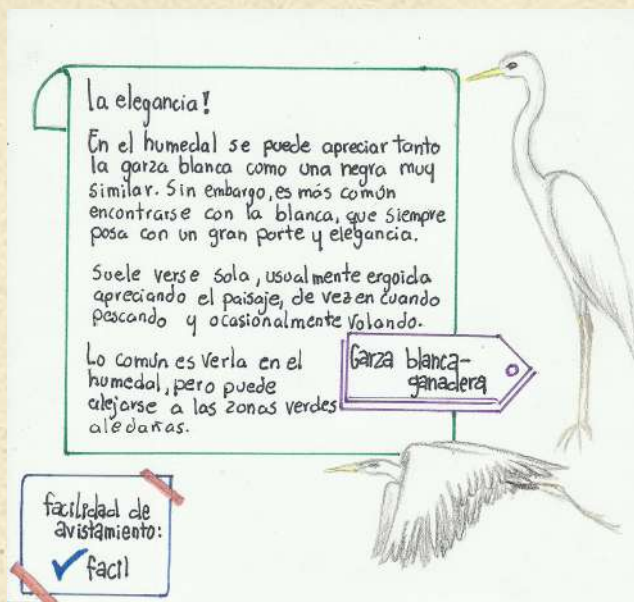 la elegancia!
En el humedal se puede apreciar tanto
la garza blanca como una negra muy
similar. Sin embargo, es más común
encontrarse con la blanca, que siempre
posa con un gran porte y elegancia.
Suele verse sola, usualmente ergoida
apreciando el paisaje, de vez en cuando
pescando y ocasionalmente volando.
Lo común es verla en el
humedal, pero puede
alejarse a las zonas verdes
aledañas.
Garza blanca-
ganadera
facilidad de
avistamiento:
facil